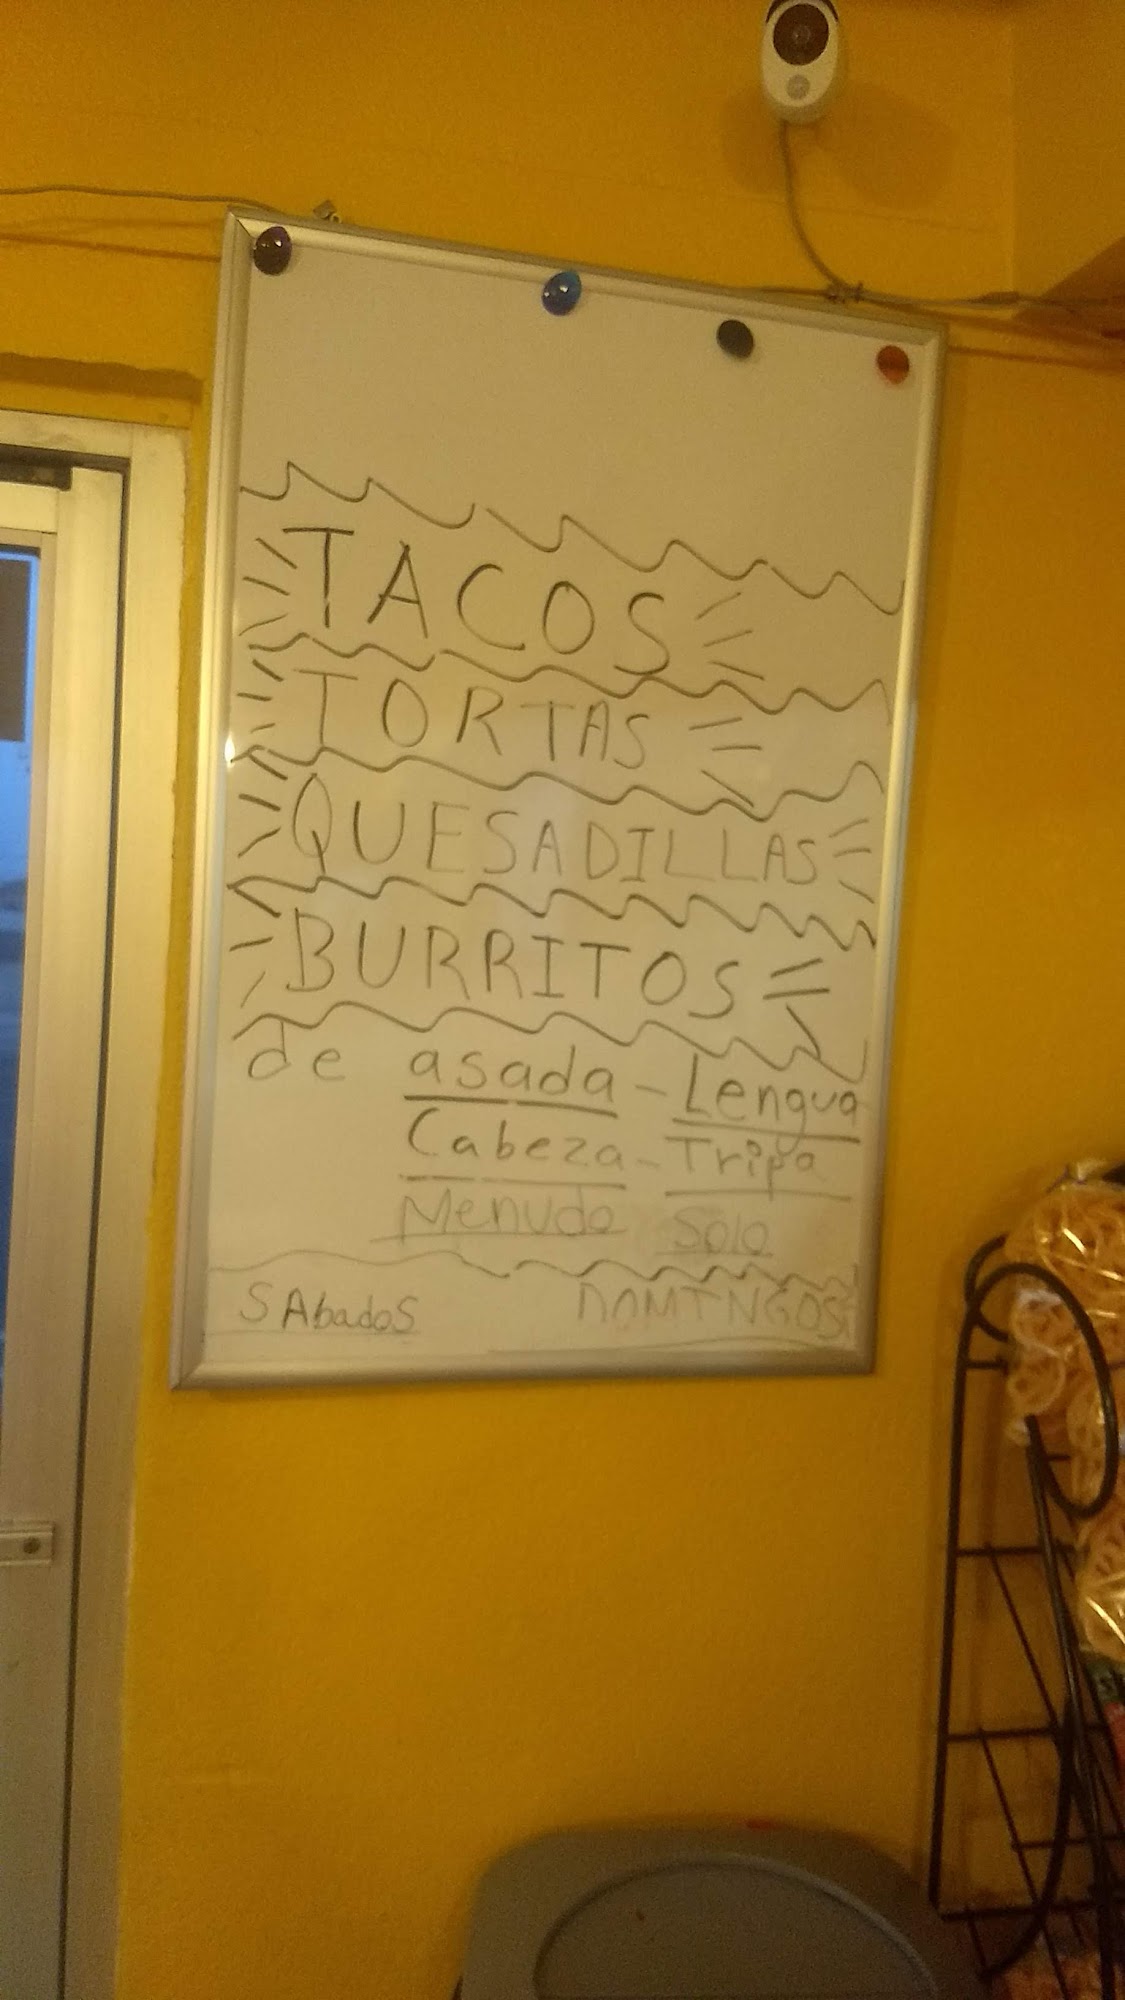 TACOS
TORTAS
QUESADILLAS
BURRITOS
de asada - Lengua
Cabeza - Tripa
Menudo Solo
SAbadoS DOMINGOS